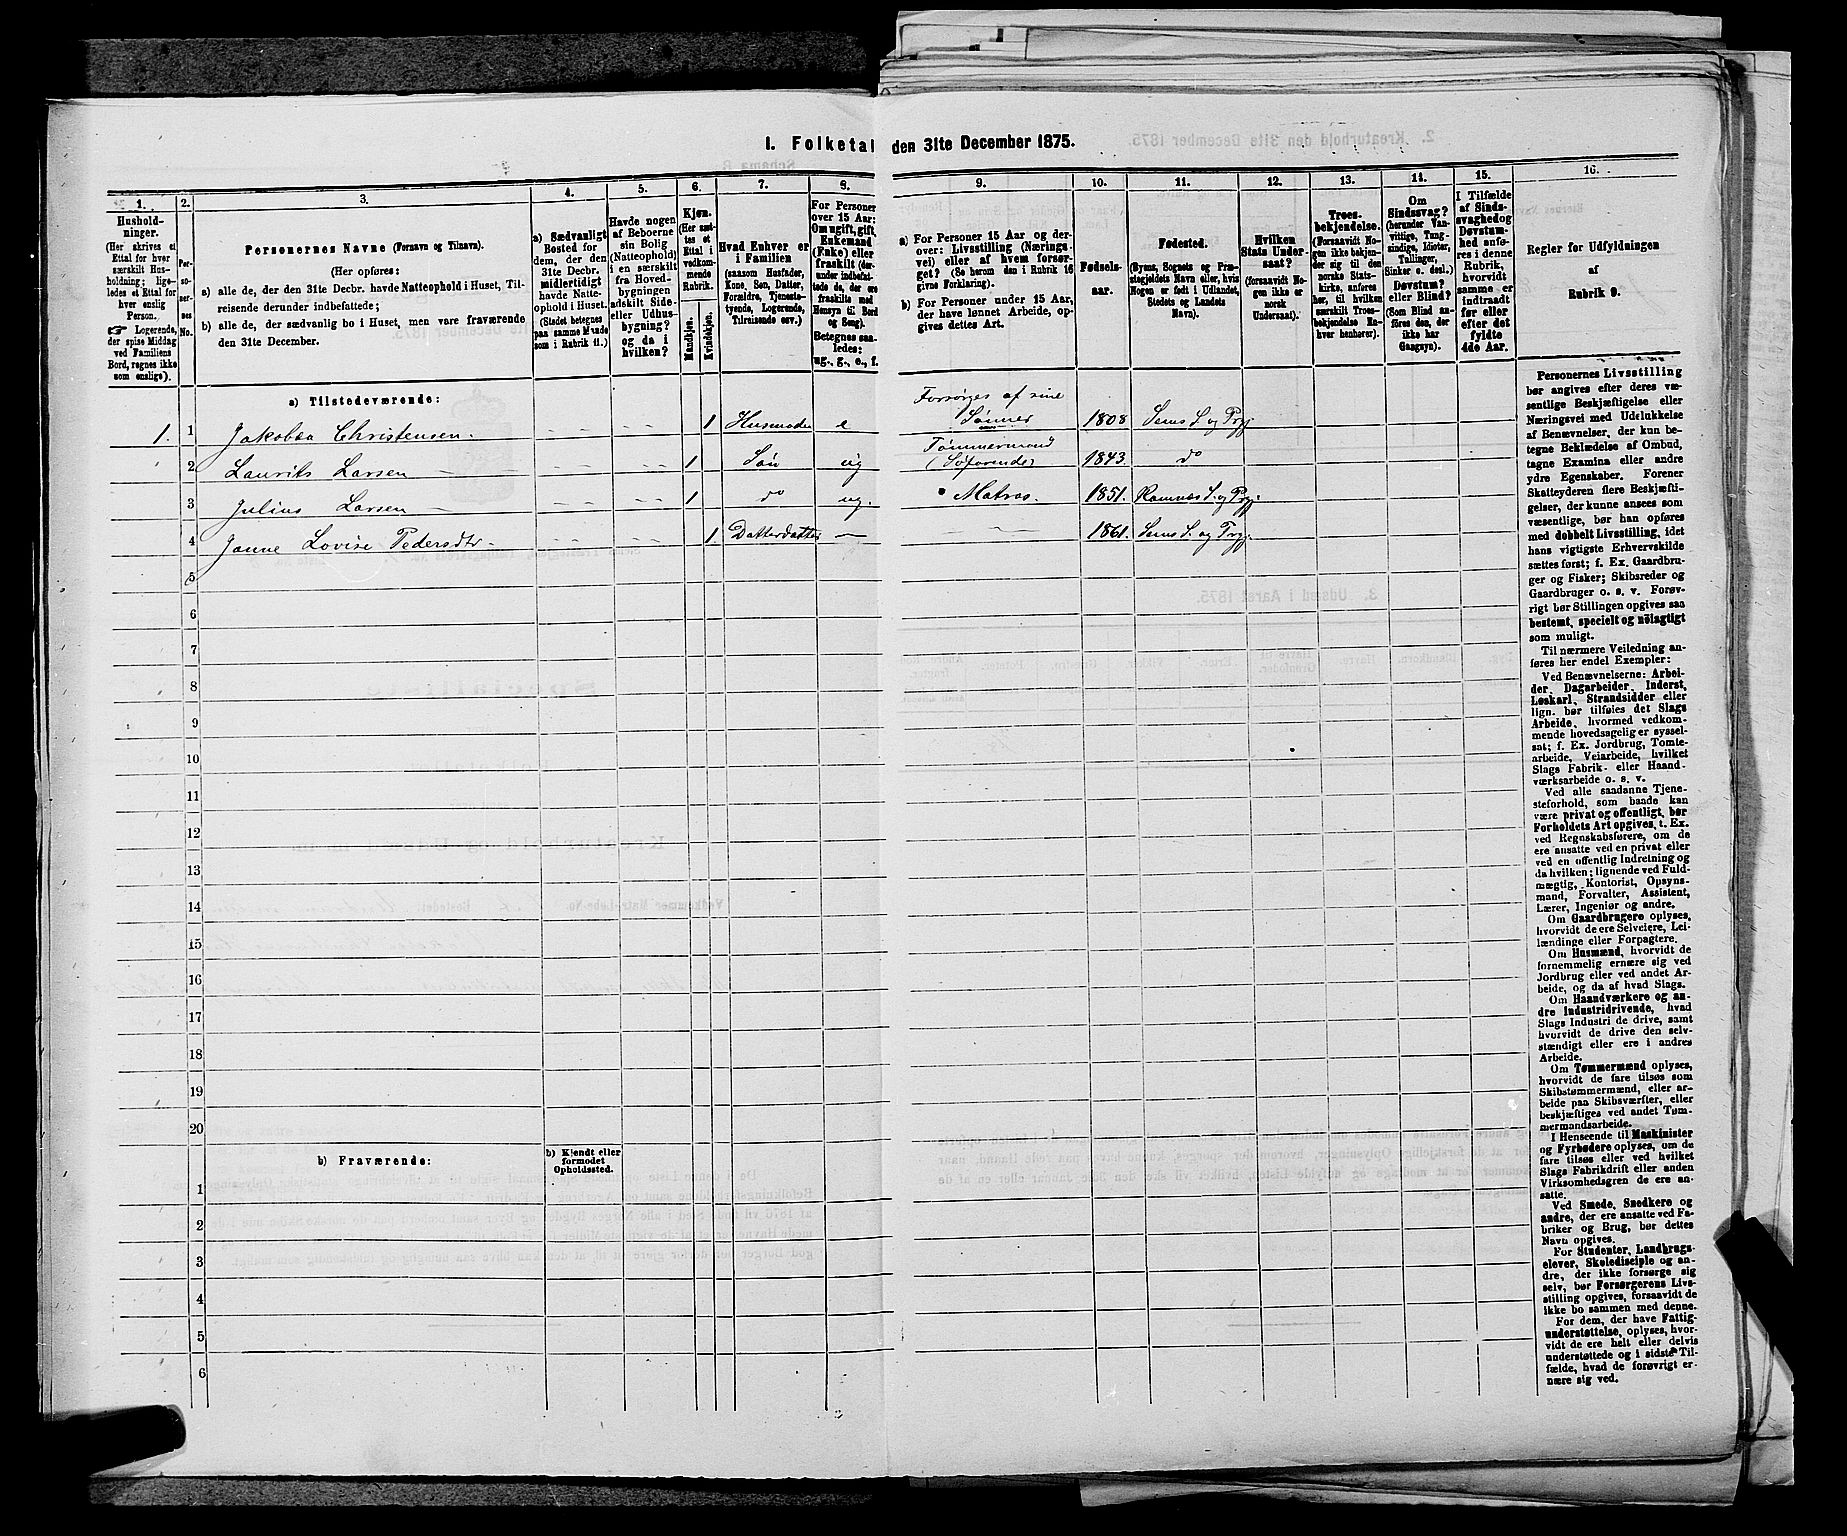 1. Folketal den 31te December 1875.
1.
Husholdninger.
(Her skrives et
Ettal for hver
særskilt Husholdning; ligeledes
et Ettal for
hver enslig
Person.
☞ Logerende,
der spise Middag
ved Familiens
Bord, regnes ikke
som enslige).
2.
Personernes No.
3.
Personernes Navne (Fornavn og Tilnavn).
(Her opføres:
a) alle de, der den 31te Decbr. havde Natteophold i Huset, Tilreisende
derunder indbefattede;
b) alle de, der sædvanlig bo i Huset, men vare fraværende
den 31te December.
4.
a) Sædvanligt
Bosted for
dem, der den
31te Decbr.
midlertidigt
havde Natteophold
i Huset.
(Stedet betegnes
paa samme Maade
som i Rubrik 11.)
5.
Havde nogen
af Beboerne
sin Bolig
(Natteophold)
i en særskilt
fra Hovedbygningen
adskilt Side-
eller Udhusbygning?
og da i
hvilken?
6.
Kjøn.
(Her sættes
et
Ettal i
vedkommende
Rubrik.
Mandkjøn.
Kvindekjøn.
7.
Hvad Enhver er
i Familien
(saasom Husfader,
Kone, Søn, Datter,
Forældre, Tjenestetyende,
Logerende,
Tilreisende osv.)
8.
For Personer
over 15 Aar:
Om ugift, gift,
Enkemand
(Enke) eller
fraskilt (derunder
indbefattede
de, der ere
fraskilte med
Hensyn til Bord
og Seng).
Betegnes saaledes:
ug., g., e., f.
9.
a) For Personer 15 Aar og derover:
Livsstilling (Næringsvei)
eller af hvem forsørget?
(Se herom den i Rubrik 16
givne Forklaring).
b) For Personer under 15 Aar,
der have lønnet Arbeide, opgives
dettes Art.
10.
Fødselsaar.
11.
Fødested.
(Byens, Sognets og Præstegjeldets
Navn eller, hvis
Nogen er født i Udlandet,
Stedets og Landets
Navn).
12.
Hvilken
Stats Undersaat?
(forsaavidt Nogen
ikke er
norsk
Undersaat).
13.
Troesbekjendelse.
(Forsaavidt Nogen
ikke bekjender
sig til den
norske Statskirke,
anføres
her, til hvilken
særskilt Troesbekjendelse
Enhver
henhører).
14.
Om
Sindssvag?
(herunder Vanvittige,
Tungsindige,
Idioter,
Tullinger,
Sinker o. desl.)
Døvstum?
eller Blind?
(Som Blind anføres
den, der
ikke har
Gangsyn).
15.
I Tilfælde
af Sindssvaghed
og
Døvstumhed
anføres
i denne
Rubrik,
hvorvidt
samme er
indtraadt
før eller
efter det
fyldte
4de Aar.
16.
Regler for Udfyldningen
af
Rubrik 9.
a) Tilstedeværende:
1. 1 Jakobæa Christensen - - - - - 1 Husmoder e Forsørges af sine Sønner 1808 Sems S. og Prgj
2 Laurits Larsen - - - - - 1 Søn ug Tømmermand (Søfarende) 1843 do
3 Julius Larsen - - - - - 1 do ug. " Matros. 1851. Ramnæs S. og Prgj.
4 Janne Lovise Pedersdtr - - - - - 1. Datterdatter — - - 1861. Sems S. og Prgj.
5
6
7
8
9
10
11
12
13
14
15
16
17
18
19
20
b) Fraværende:
b) Kjendt eller
formodet
Opholdssted.
1
2
3
4
5
6
Personernes Livsstilling
bør angives efter deres væsentlige
Beskjæftigelse eller
Næringsvei med Udelukkelse
af Benævnelser, der kun betegne
Beklædelse af Ombud,
tagne Examina eller andre
ydre Egenskaber. Forener
Skatteyderen flere Beskjæftigelser,
der kunne ansees som
væsentlige, bør han opføres
med dobbelt Livsstilling, idet
hans vigtigste Erhvervskilde
sættes først; f. Ex. Gaardbruger
og Fisker; Skibsreder og
Gaardbruger o. s. v. Forøvrigt
bør Stillingen opgives saa
bestemt, specielt og nöiagtigt
som muligt.
Til nærmere Veiledning anføres
her endel Exempler:
Ved Benævnelserne: Arbeider,
Dagarbeider, Inderst,
Løskarl, Strandsidder eller
lign. bør tilføies det Slags
Arbeide, hvormed vedkommende
hovedsagelig er sysselsat;
f. Ex. Jordbrug, Tomtearbeide,
Veiarbeide, hvilket
Slags Fabrik- eller Haandværksarbeide
o. s. v.
Ved alle saadanne Tjenesteforhold,
som baade kan
være privat og offentligt, bør
Forholdets Art opgives, t. Ex.
ved Regnskabsførere, om de
ere ansatte ved en privat eller
ved en offentlig Indretning og
da hvilken; lignende ved Fuldmægtig,
Kontorist, Opsynsmand,
Forvalter, Assistent,
Lærer, Ingeniør og andre.
Om Gaardbrugere oplyses,
hvorvidt de ere Selveiere, Leilændinge
eller Forpagtere.
Om Husmænd, hvorvidt de
fornemmelig ernære sig ved
Jordbrug eller ved andet Arbeide,
og da af hvad Slags.
Om Haandværkere og andre
Industridrivende, hvad
Slags Industri de drive, samt
hvorvidt de drive den selvstændigt
eller ere i andres
Arbeide.
Om Tømmermænd oplyses,
hvorvidt de fare tilsøs som
Skibstømmermænd, eller arbeide
paa Skibsværfter, eller
beskjæftiges ved andet Tømmermandsarbeide.
I Henseende til Maskinister
og Fyrbødere oplyses, om de
fare tilsøs eller ved hvilket
Slags Fabrikdrift eller anden
Virksomhedsgren de ere ansatte.
Ved Smede, Snedkere og
andre, der ere ansatte ved Fabriker
og Brug, bør dettes
Navn opgives.
For Studenter, Landbrugselever,
Skoledisciple og andre,
der ikke forsørge sig
selv, bør Forsørgerens Livsstilling
opgives, forsaavidt de
ikke bo sammen med denne.
For dem, der have Fattigunderstøttelse,
oplyses, hvorvidt
de ere helt eller delvis
understøttede og i sidste Tilfælde,
hvad de forøvrigt ernære
sig ved.